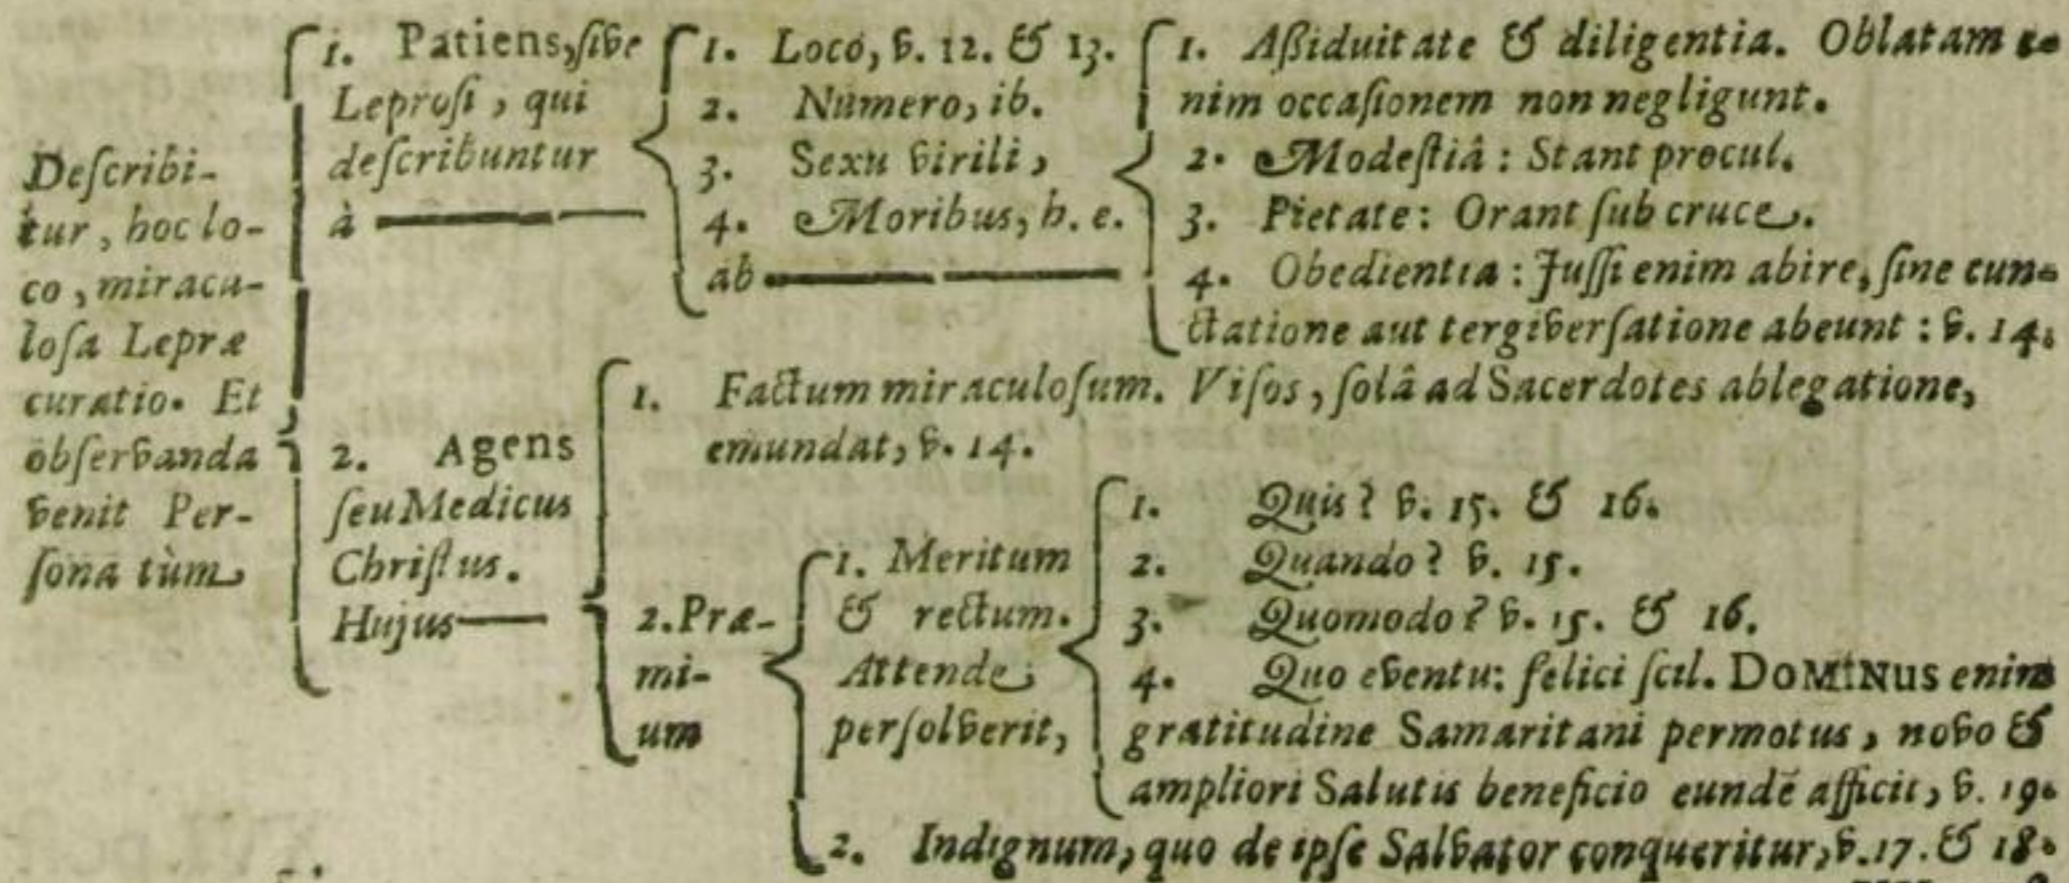 Deſcribi-
tur, hoc lo-
co, miracu-
loſa Lepræ
curatio. Et
obſervanda
venit Per-
ſona tùm
1. Patiens, ſive
Leproſi, qui
deſcribuntur
à
1. Loco, v. 12. & 13.
2. Numero, ib.
3. Sexu virili,
4. Moribus, h. e.
ab
1. Aßiduitate & diligentia. Oblatam e-
nim occaſionem non negligunt.
2. Modeſtiâ: Stant procul.
3. Pietate: Orant ſub cruce.
4. Obedientia: Juſſi enim abire, ſine cun-
ctatione aut tergiverſatione abeunt: v. 14.
2. Agens
ſeu Medicus
Chriſtus.
Hujus
1. Factum miraculoſum. Viſos, ſolâ ad Sacerdotes ablegatione,
emundat, v. 14.
2. Præ-
mi-
um
1. Meritum
& rectum.
Attende
perſolverit,
1. Quis? v. 15. & 16.
2. Quando? v. 15.
3. Quomodo? v. 15. & 16.
4. Quo eventu: felici ſcil. DOMINUS enim
gratitudine Samaritani permotus, novo &
ampliori Salutis beneficio eundē afficit, v. 19.
2. Indignum, quo de ipſe Salvator conqueritur, v. 17. & 18.